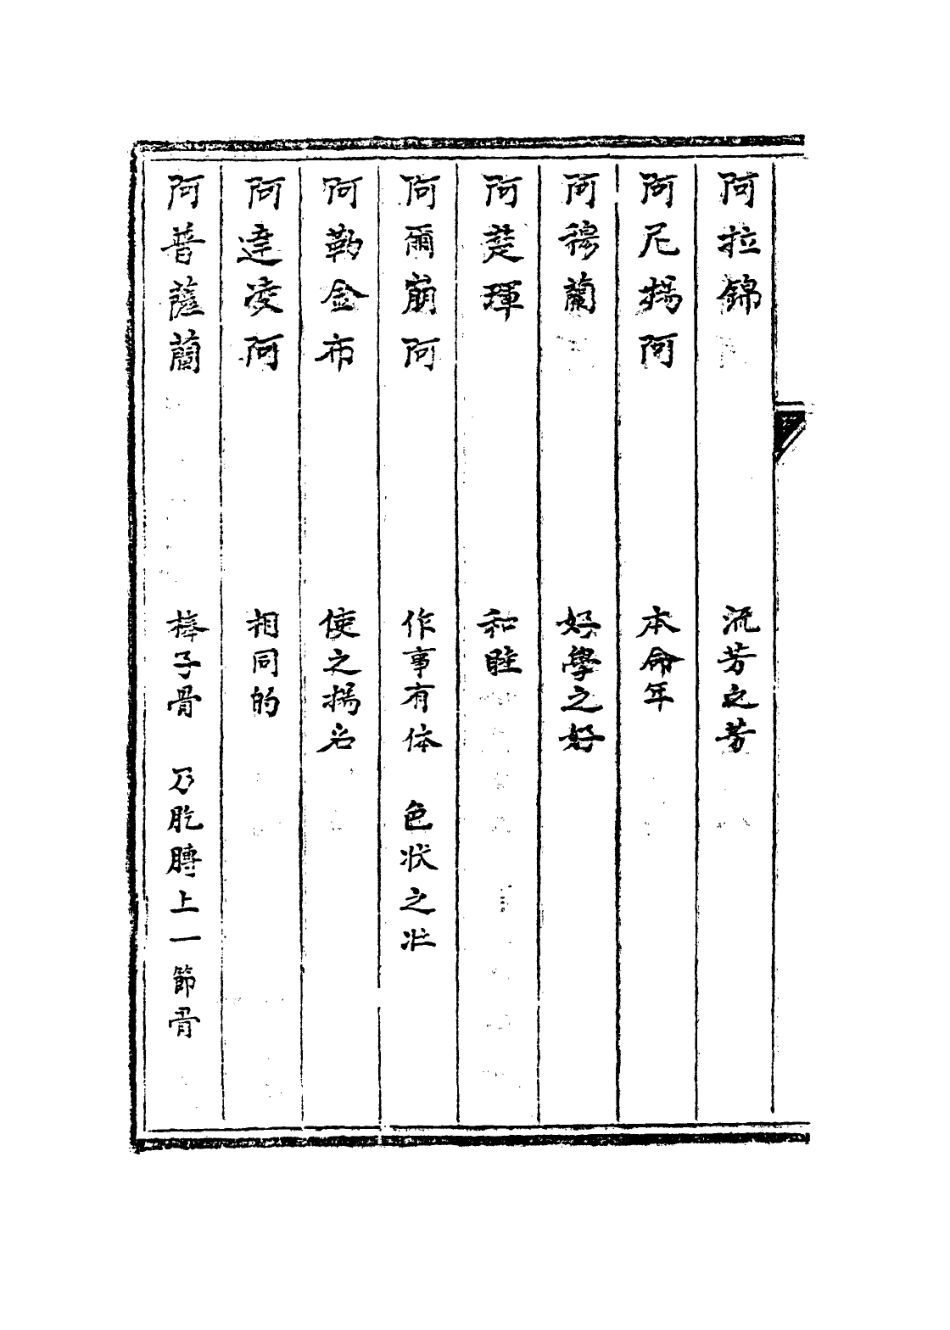 阿拉錦 流芳之芳
阿尼揚阿 本命年
阿穆蘭 好學之好
阿蓌琿 和睦
阿爾崩阿 作事有体 色状之状
阿勒金布 使之揚名
阿達凌阿 相同的
阿普薩蘭 棒子骨 乃肐膊上一節骨